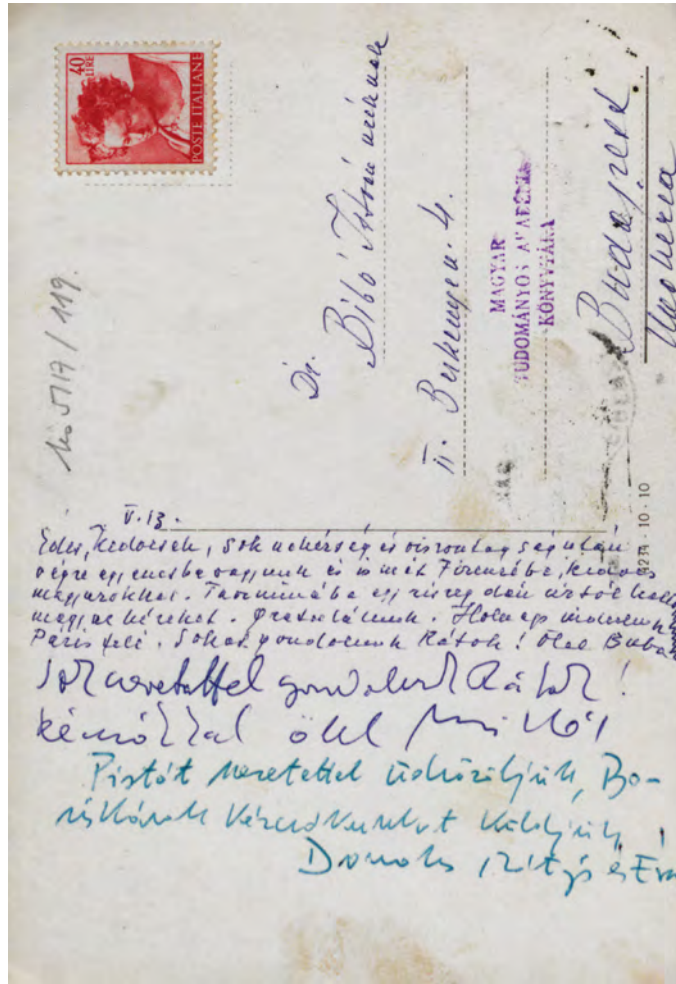 40
LIRE
POSTE ITALIANE
Dr.
Bibó István úrnak
II. Berkenye u. 4.
MAGYAR
TUDOMÁNYOS AKADÉMIA
KÖNYVTÁRA
Budapest
Ungheria
Ms 5117/119.
3234 - 10 - 10
V. 13.
Édes Kedvesek, sok nehézség és viszontagság után
végre együttesbe vagyunk és ismét Firenzébe, kedves
magyarokkal. Taorminába egy dán
magyar híreket. gratulálunk. Holnap indulunk
Páris felé. Sokat gondolunk Rátok! Ölel Baba
Sok szeretettel gondolunk Rátok!
ölel Miklós
Pistát szeretettel üdvözöljük, Bo-
riskának kézcsókunkat küldjük
és Éva